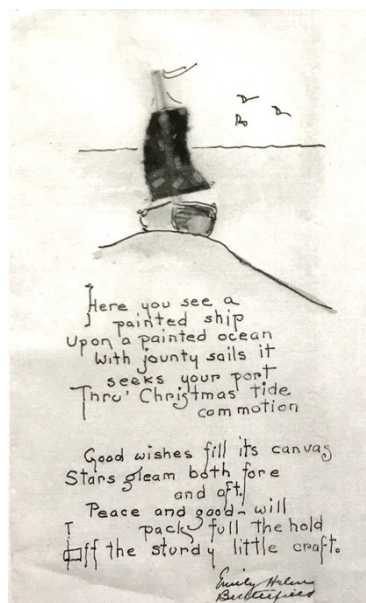 Here you see a
painted ship
Upon a painted ocean
With jounty sails it
seeks your port
Thro' Christmas tide
commotion
Good wishes fill its canvas
Stars gleam both fore
and aft.
Peace and good-will
I pack full the hold
Off the sturdy little craft.
Emily Helen
Butterfield